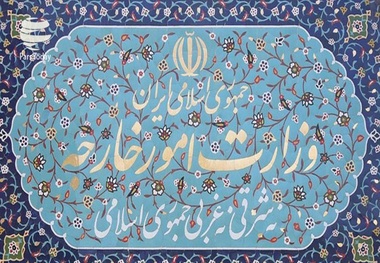 ParsToday
جمهوری اسلامی ایران
وزارت امور خارجه
نه شرقی نه غربی جمهوری اسلامی